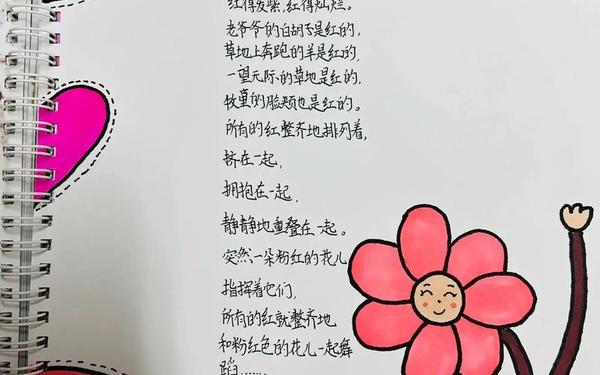 红得发紫,红得灿烂。
老爷爷的白胡子是红的,
草地上奔跑的羊是红的,
一望无际的草地是红的,
牧童的脸颊也是红的。
所有的红整齐地排列着,
挤在一起,
拥抱在一起,
静静地重叠在一起。
突然一朵粉红的花儿
指挥着他们,
所有的红就整齐地
和粉红色的花儿一起舞
蹈……